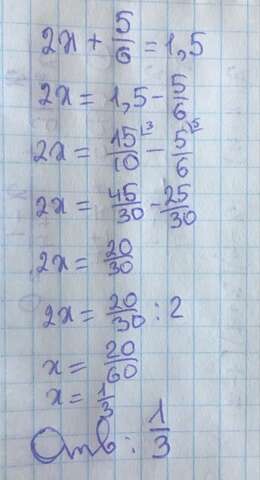 2x + 5/6 = 1,5
2x = 1,5 - 5/6
2x = 15/10 ⌊3 - 5/6 ⌊5
2x = 45/30 - 25/30
2x = 20/30
2x = 20/30 : 2
x = 20/60
x = 1/3
Отв: 1/3